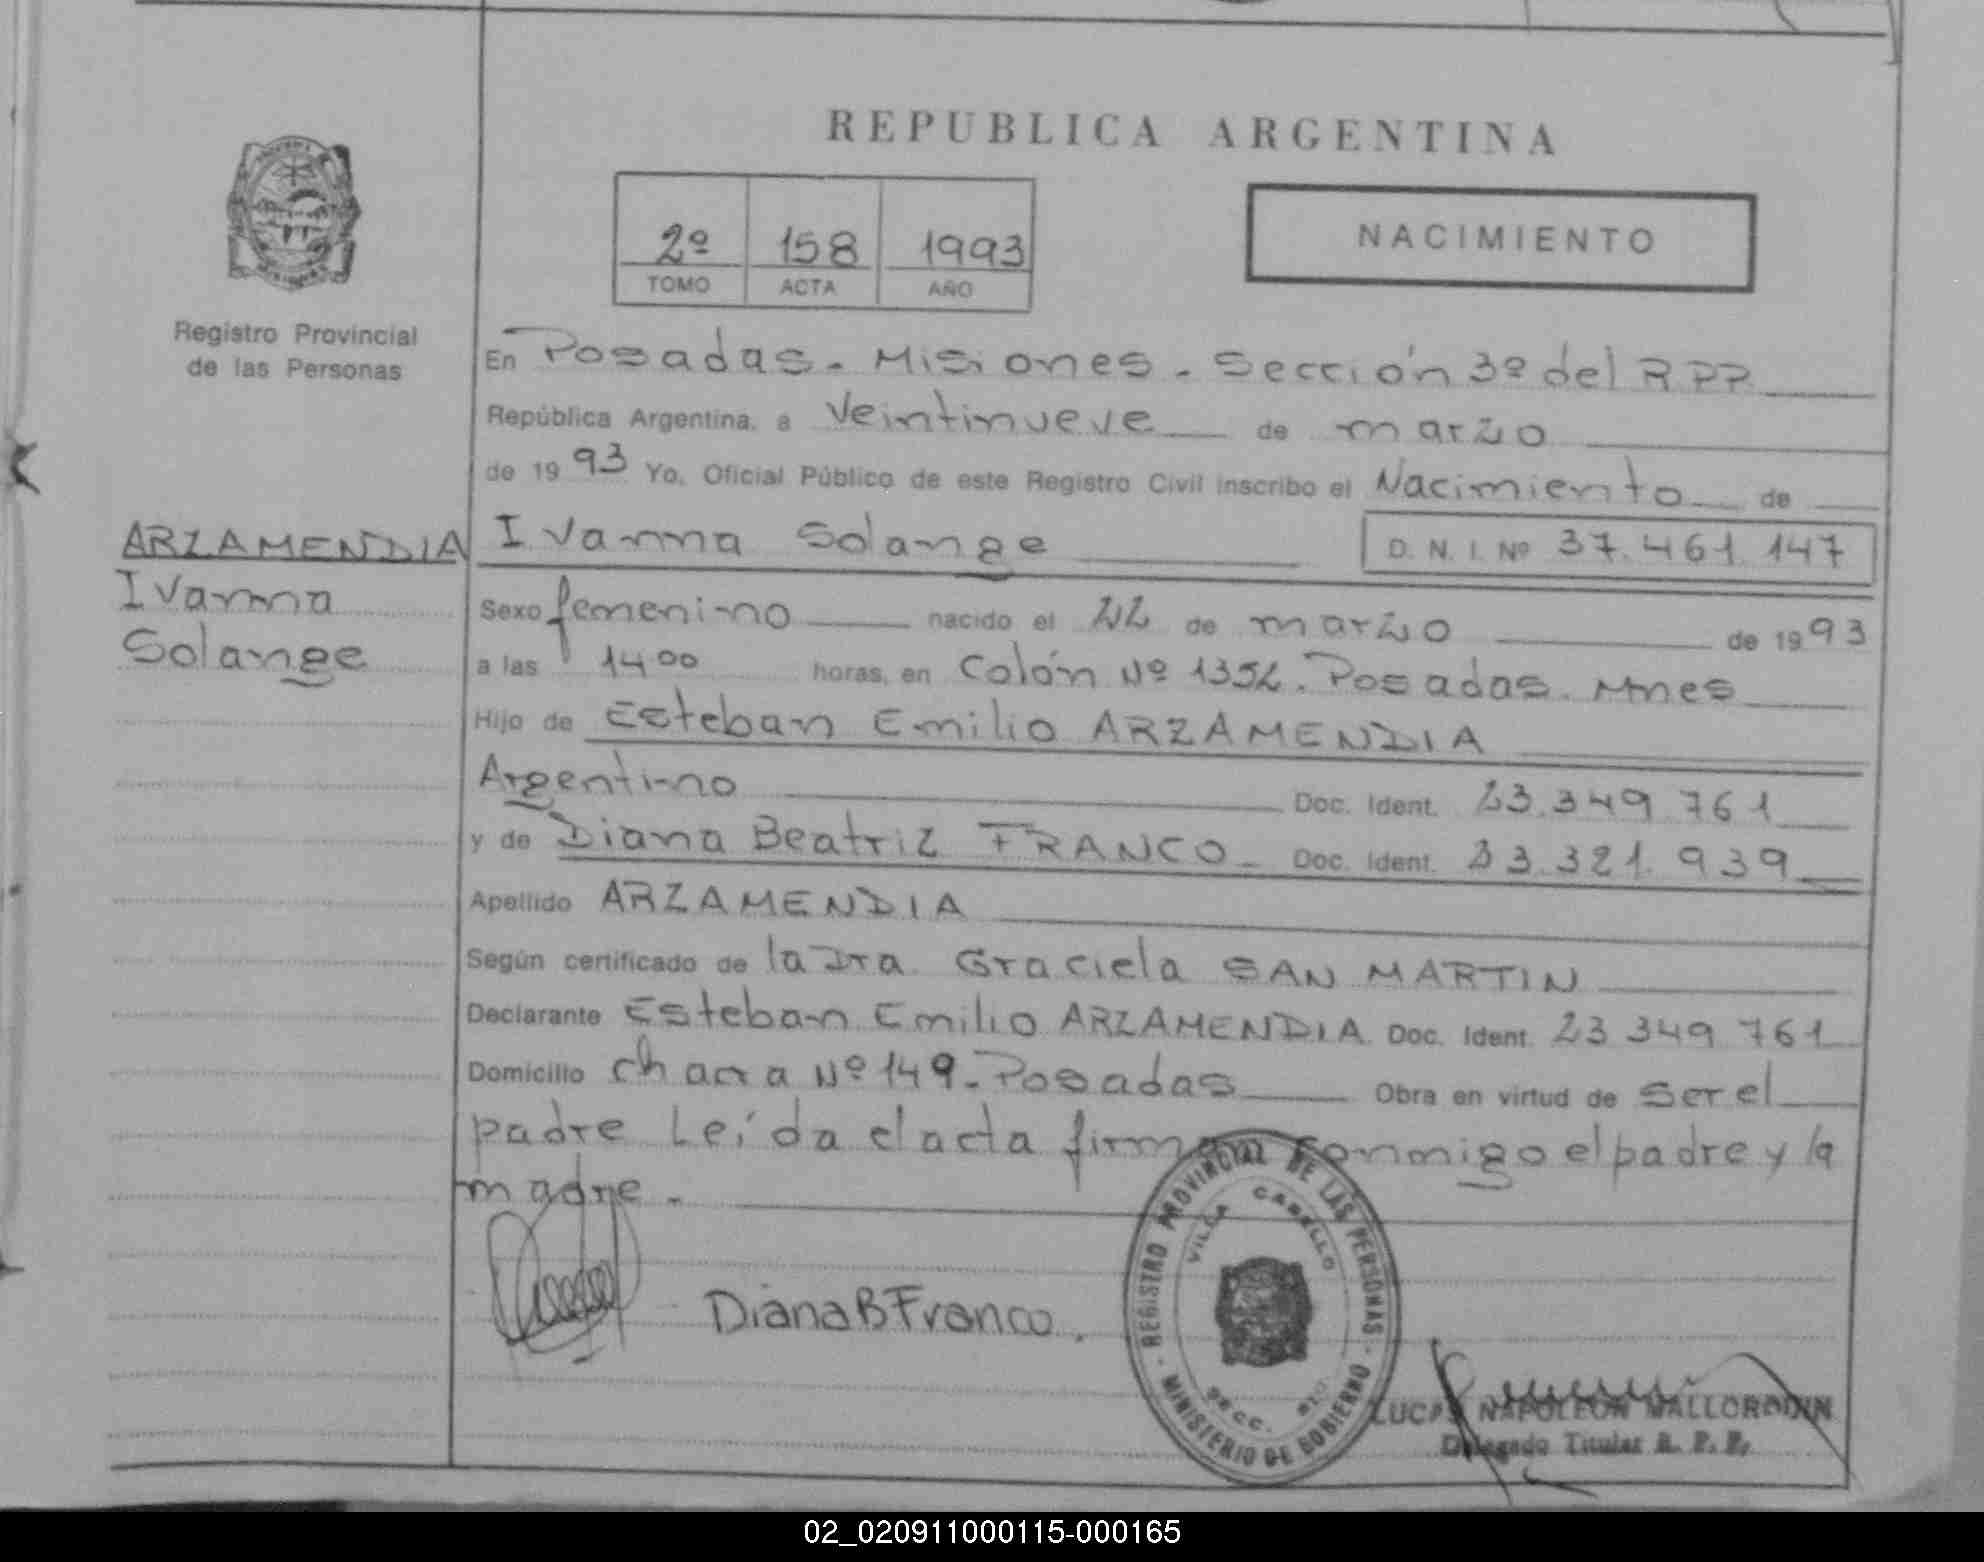 REPUBLICA ARGENTINA
2º 158 1993
TOMO ACTA AÑO
NACIMIENTO
Registro Provincial
de las Personas
En Posadas. Misiones. Sección 3º del RPP
República Argentina, a Veintinueve de marzo
de 1993 Yo, Oficial Público de este Registro Civil inscribo el Nacimiento de
Ivanna Solange D. N. I. Nº 37.461.147
ARZAMENDIA
Ivanna
Solange
Sexo femenino nacido el 22 de marzo de 1993
a las 14 00 horas, en Colón Nº 1352. Posadas. Mnes
Hijo de Esteban Emilio ARZAMENDIA
Argentino Doc. Ident. 23.349.761
y de Diana Beatriz FRANCO Doc. Ident. 23.321.939
Apellido ARZAMENDIA
Según certificado de la Dra. Graciela SAN MARTIN
Declarante Esteban Emilio ARZAMENDIA. Doc. Ident. 23 349 761
Domicilio Chacra Nº 149. Posadas Obra en virtud de ser el
padre Leída el acta firman conmigo el padre y la
madre.
Diana B Franco.
REGISTRO PROVINCIAL DE LAS PERSONAS
VILLA CABELLO
SECC.
MINISTERIO DE GOBIERNO
LUCAS NAPOLEON MALLORQUIN
Delegado Titular R. P. P.
02_020911000115-000165